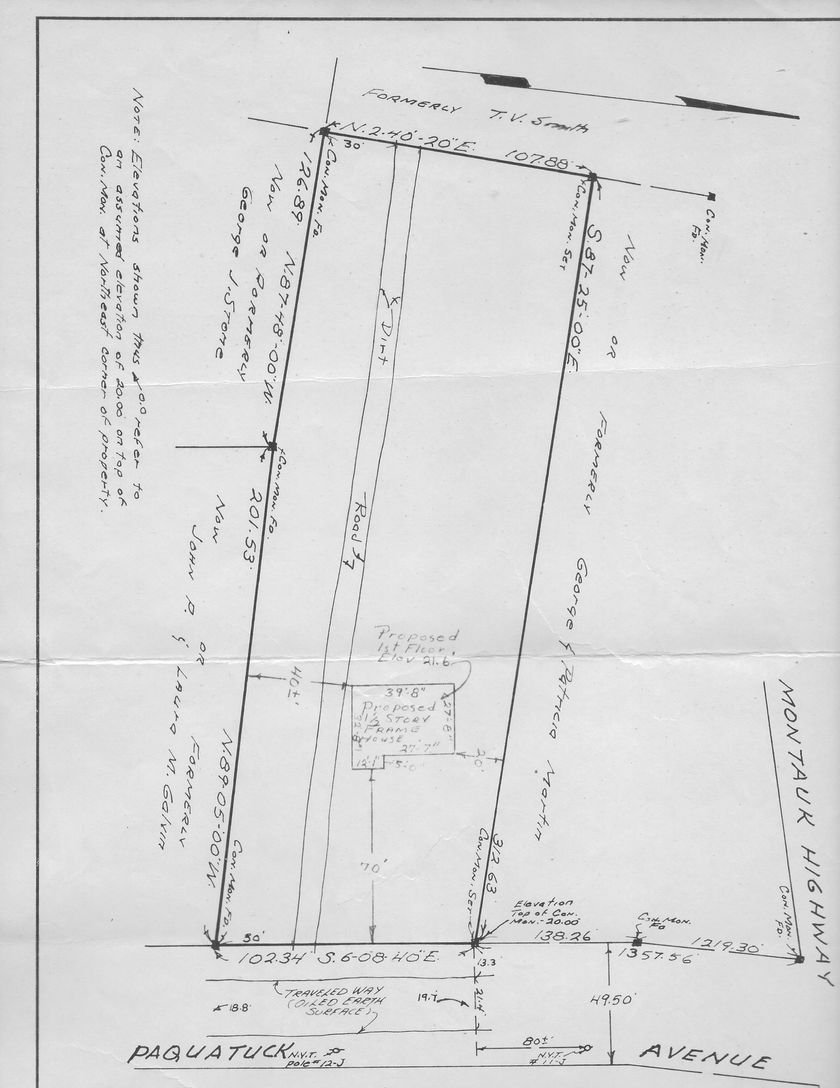 FORMERLY T.V. Smith
N. 2-40'-20"E.
107.88'
30'
Con. Mon. Fo.
Con. Mon. Set
Con. Mon. Fo.
NOTE: Elevations shown thus 0.0 refer to
an assumed elevation of 20.00 on top of
Con. Mon. at Northeast corner of property.
126.89'
N.87-48'-00"W.
NOW OR FORMERLY
GEORGE J. STONE
S.87-25'-00"E.
NOW OR FORMERLY George & Patricia Martin
Dirt
Road
Con. Mon. Fo.
201.53'
N.89-05'-00"W.
NOW OR FORMERLY
JOHN P. & LAURA M. GALVIN
Proposed
1st Floor
Elev 21.6'
39'-8"
Proposed
1½ STORY
FRAME
HOUSE
27'-8"
32'-8"
27'-7"
12'-1"
5'-0"
40±'
20'
70'
312.63'
Con. Mon. Set
Con. Mon. Fo.
MONTAUK HIGHWAY
Con. Mon.
Fo.
Elevation
Top of Con.
Mon.-20.00'
Con. Mon.
Fo
50'
102.34' S.6-08'-40"E.
138.26'
1219.30'
1357.56'
13.3
TRAVELED WAY
(OILED EARTH
SURFACE)
18.8'
21.4'
49.50'
80±'
PAQUATUCK
AVENUE
N.Y.T.
pole #12-J
N.Y.T.
#11-J